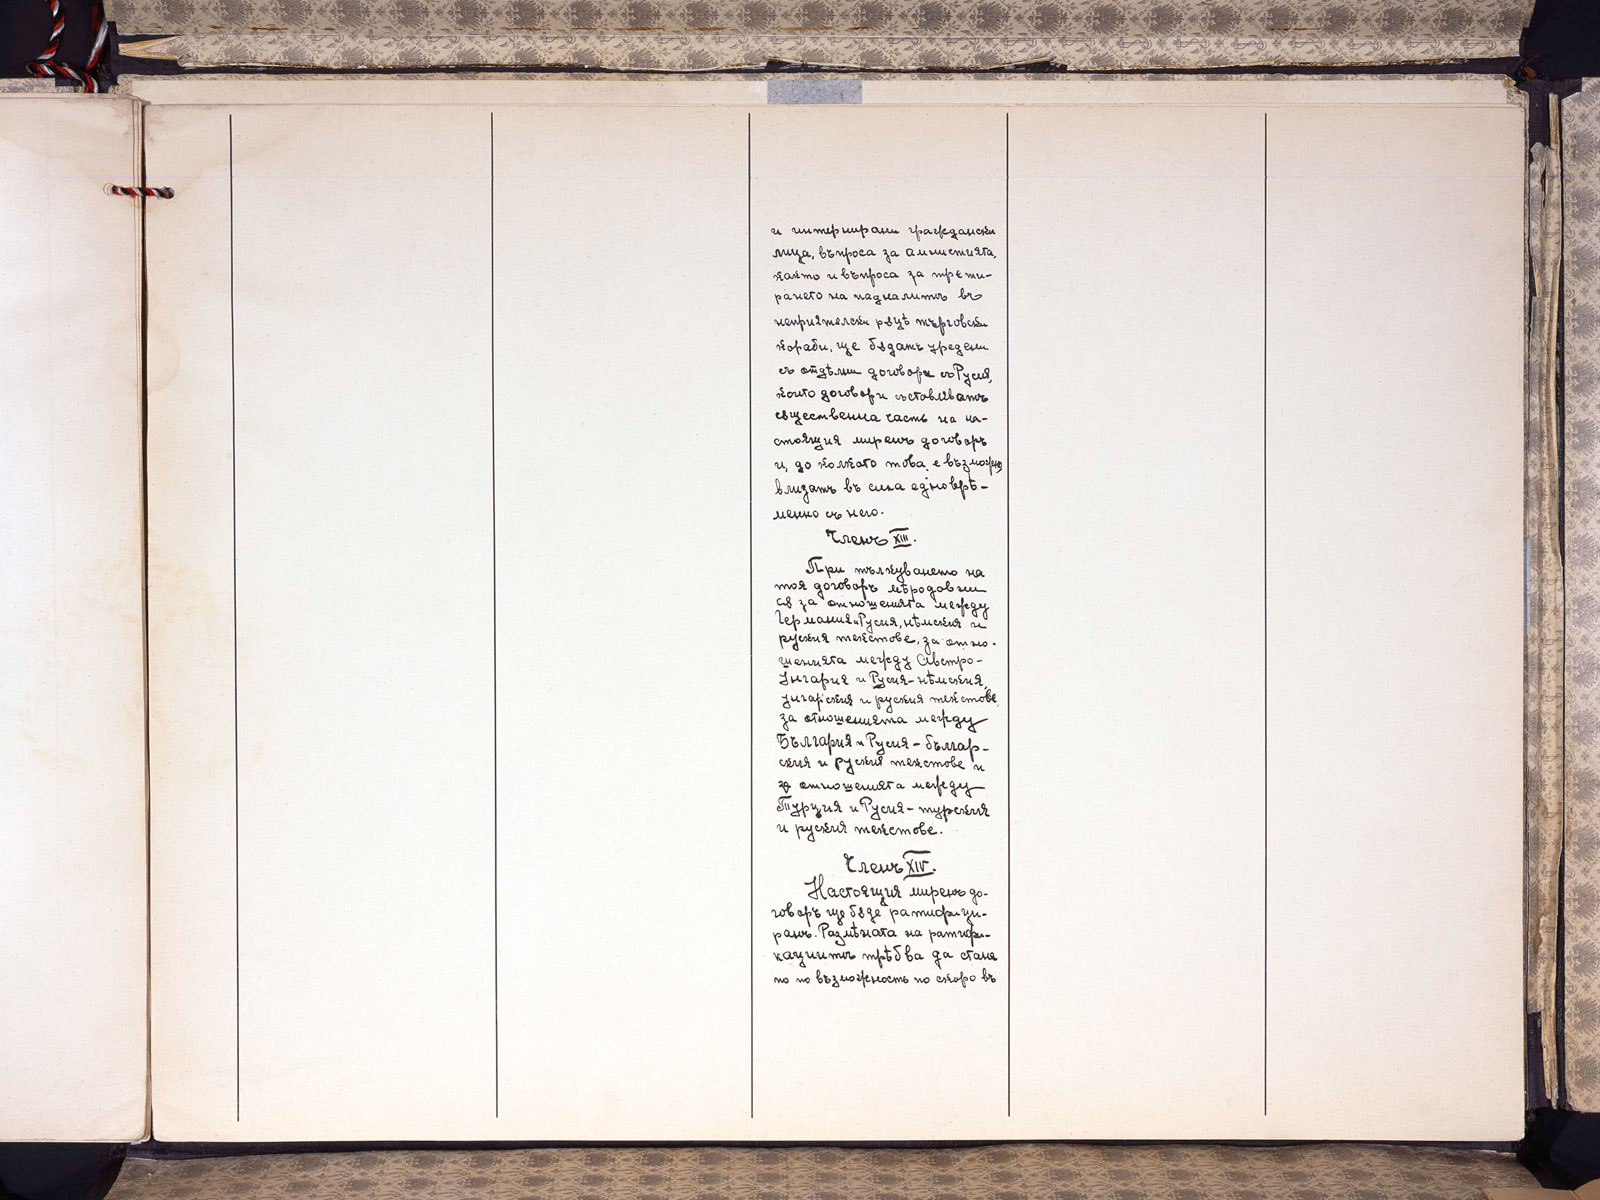 и интернирани граждански
лица, въпроса за амнистията,
както и въпроса за трети-
рането на падналитѣ въ
неприятелски рѫцѣ търговски
кораби, ще бѫдатъ уредени
съ отдѣлни договори съ Русия,
които договори съставляватъ
сѫществена часть на на-
стоящия миренъ договоръ
и, до колкото това е възможно,
влизатъ въ сила едноврѣ-
менно съ него.
Членъ XIII.
При тълкуването на
тоя договоръ мѣродавни
сѫ за отношенията между
Германия и Русия, нѣмския и
руския текстове, за отно-
шенията между Австро-
Унгария и Русия - нѣмския,
унгарския и руския текстове,
за отношенията между
България и Русия - българ-
ския и руския текстове и
за отношенията между
Турция и Русия - турския
и руския текстове.
Членъ XIV.
Настоящия миренъ до-
говоръ ще бѫде ратифици-
ранъ. Размѣната на ратифи-
кациитѣ трѣбва да стане
по възможность по скоро въ